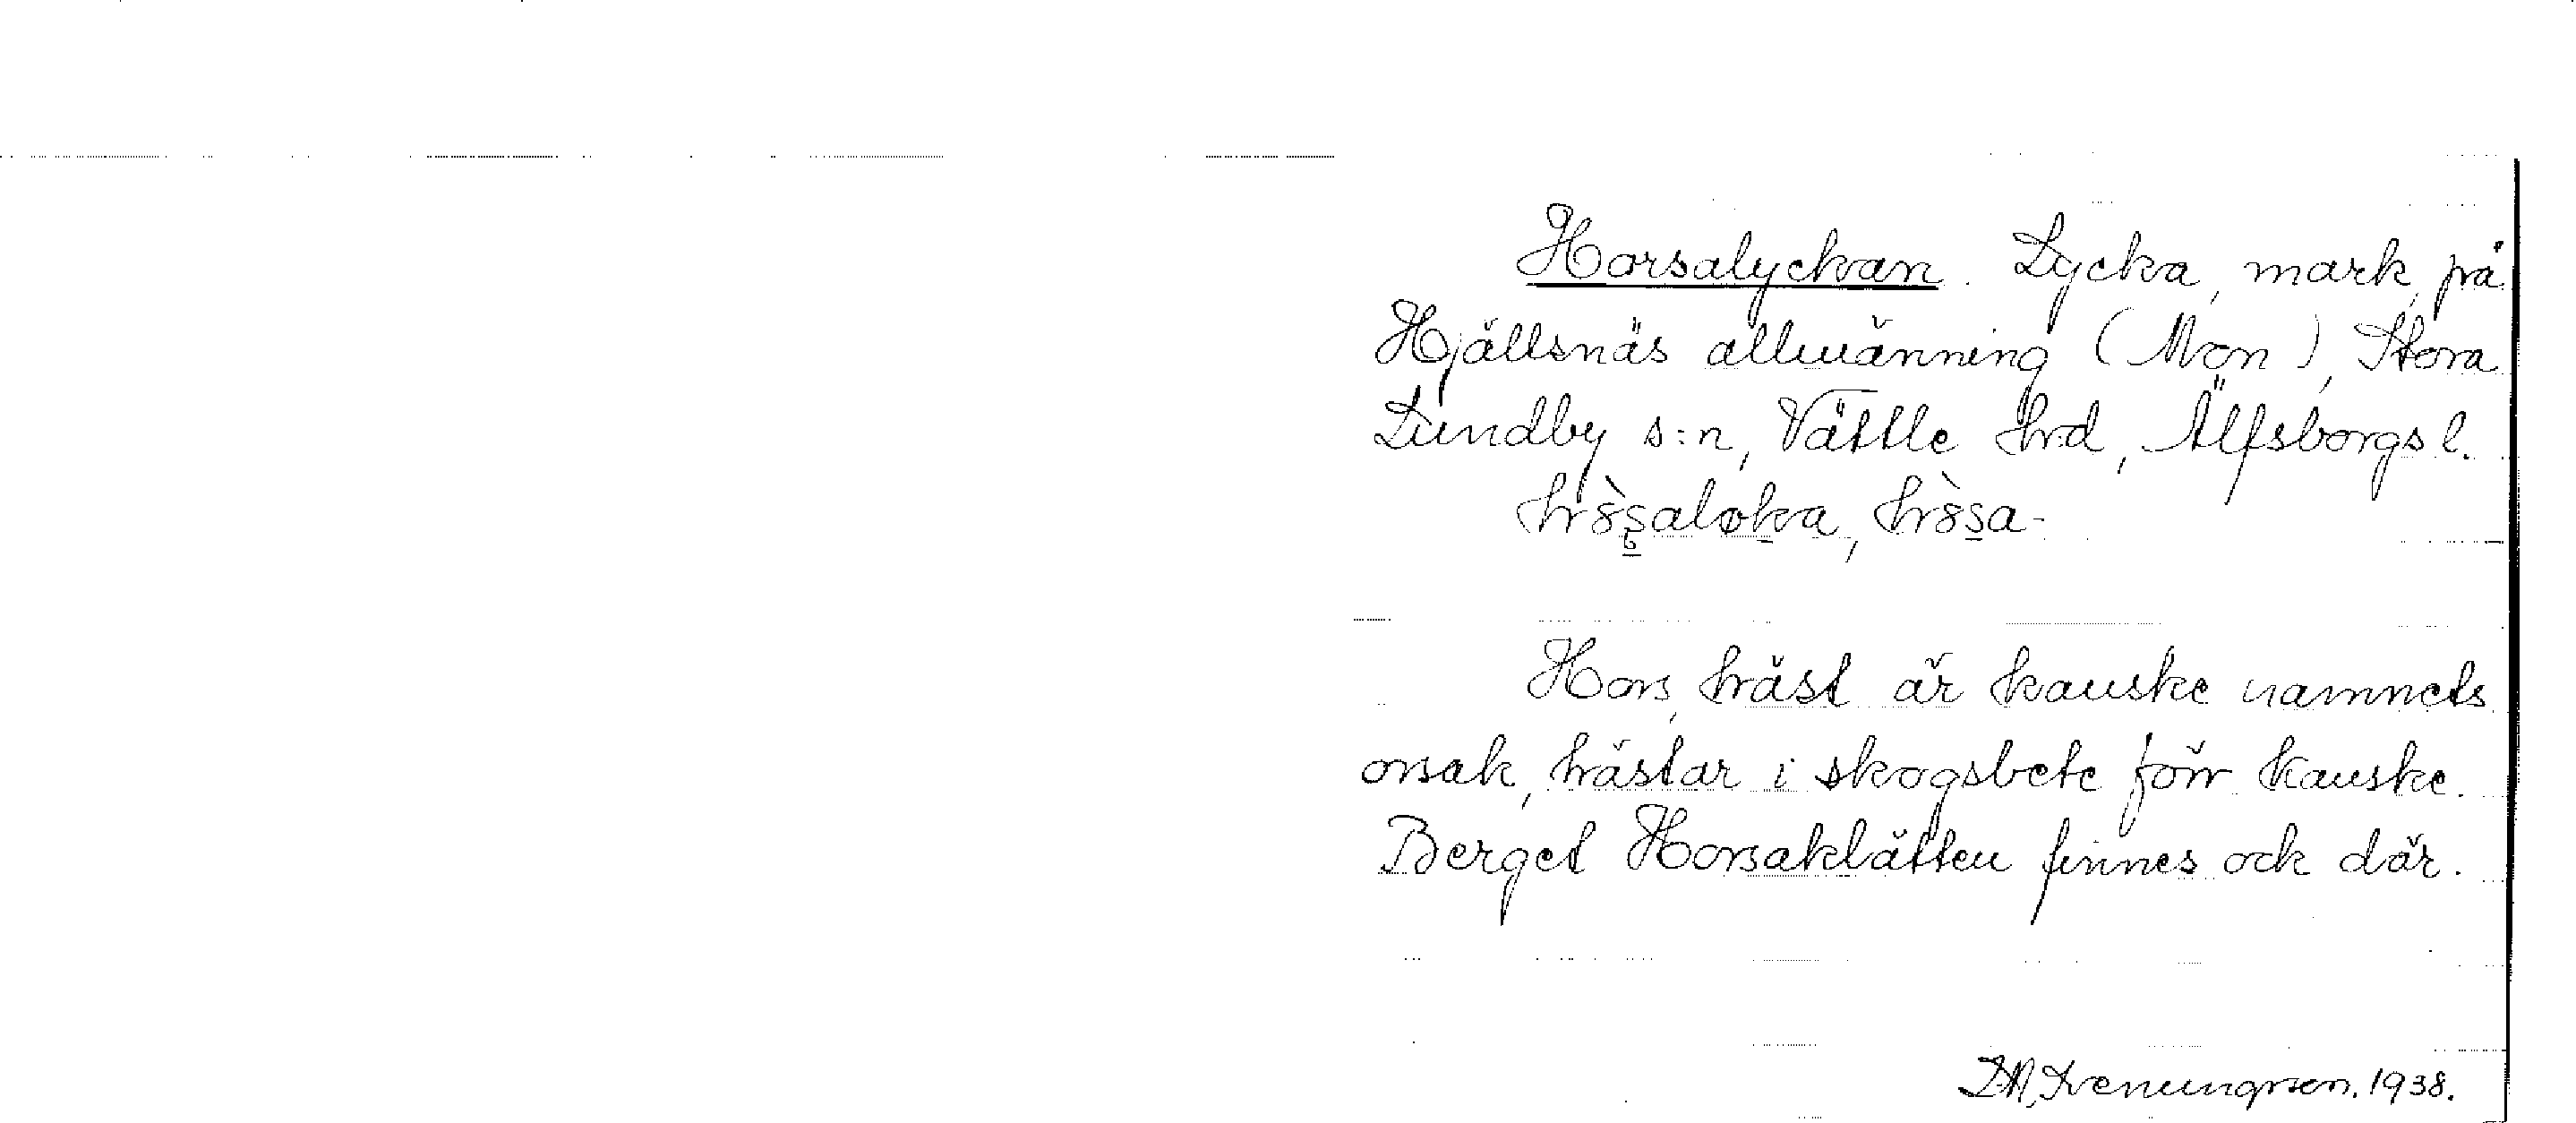 Horsalyckan. Lycka, mark, på
Hjällsnäs allmänning (Mon), Stora
Lundby s:n, Vättle hrd, Älfsborgs l.
Hors, häst är kanske namnets
orsak, hästar i skogsbete förr kanske.
Berget Horsaklätten finnes ock där.
1938.